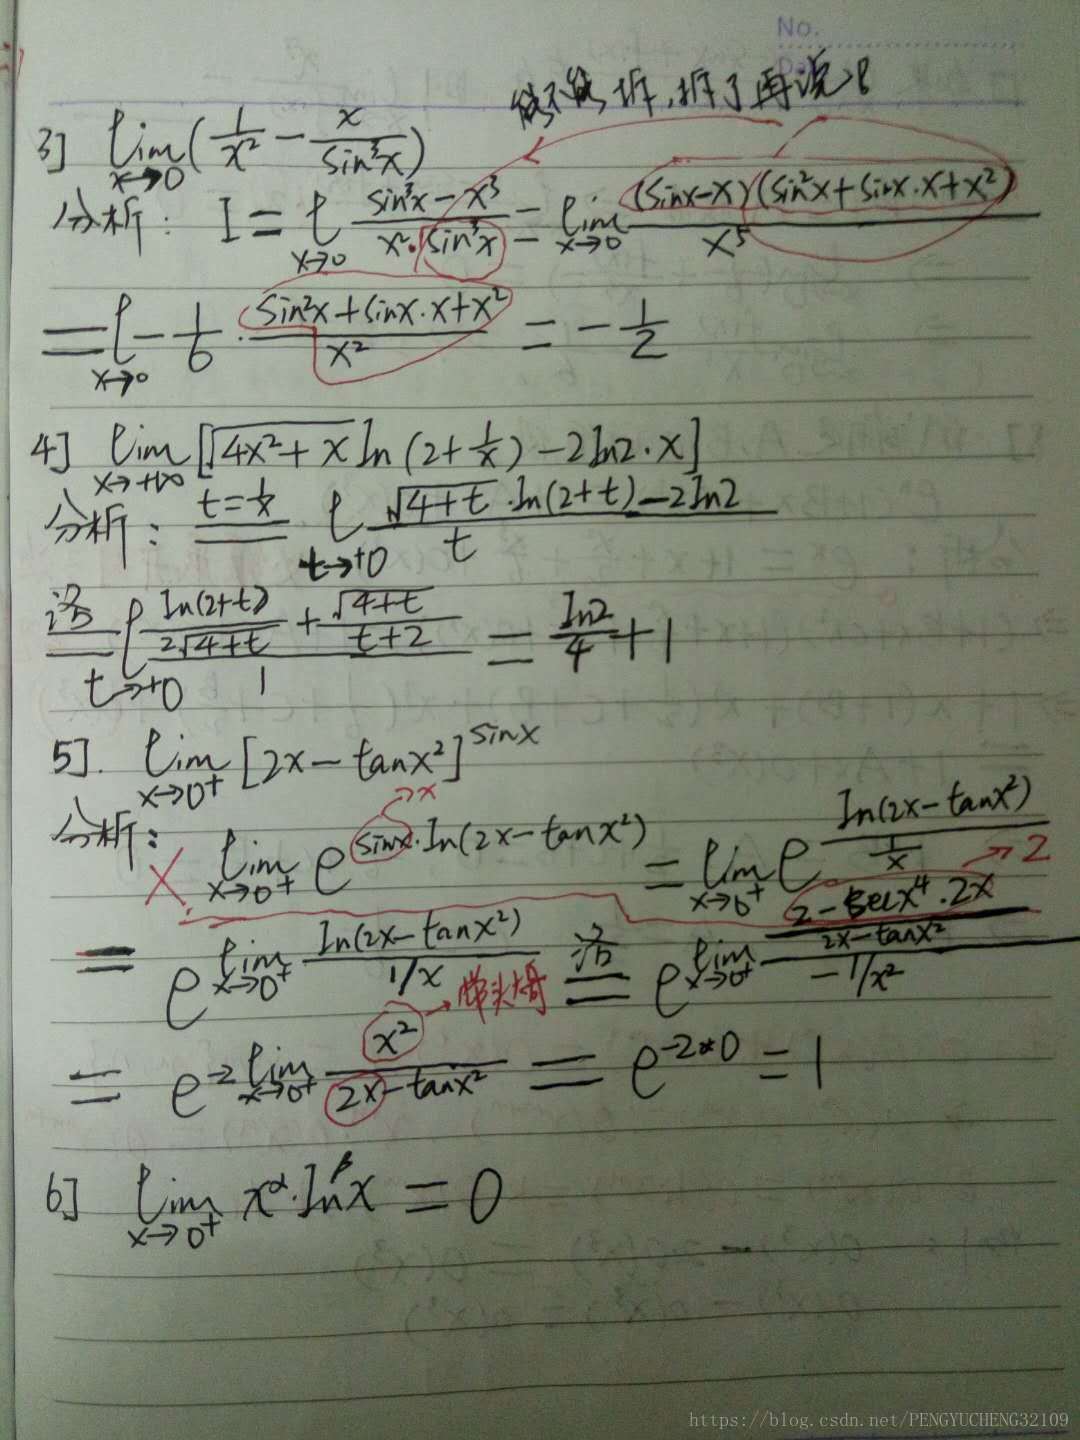 No.
能不能拆,拆了再说!
3] lim x→0 (1/x² - x/sin³x)
分析: I = l x→0 (sin³x - x³)/(x²·sin³x) = lim x→0 (sinx-x)(sin²x+sinx·x+x²)/x⁵
= l x→0 -1/6 · (sin²x+sinx·x+x²)/x² = -1/2
4] lim x→+∞ [√(4x²+x) ln(2+1/x) - 2ln2·x]
分析: t=1/x = l t→+0 (√(4+t)·ln(2+t) - 2ln2)/t
洛 = l t→+0 (ln(2+t)/(2√(4+t)) + √(4+t)/(t+2))/1 = ln2/4 + 1
5]. lim x→0⁺ [2x - tanx²]^sinx
→x
分析: × lim x→0⁺ e^(sinx·ln(2x-tanx²)) = lim x→0⁺ e^(ln(2x-tanx²)/(1/x))
→2
= e^(lim x→0⁺ ln(2x-tanx²)/(1/x)) 洛 = e^(lim x→0⁺ ((2-secx⁴·2x)/(2x-tanx²))/(-1/x²))
→带头大哥
= e^(-2 lim x→0⁺ x²/(2x-tanx²)) = e^(-2*0) = 1
6] lim x→0⁺ x^α·ln^βx = 0
https://blog.csdn.net/PENGYUCHENG32109